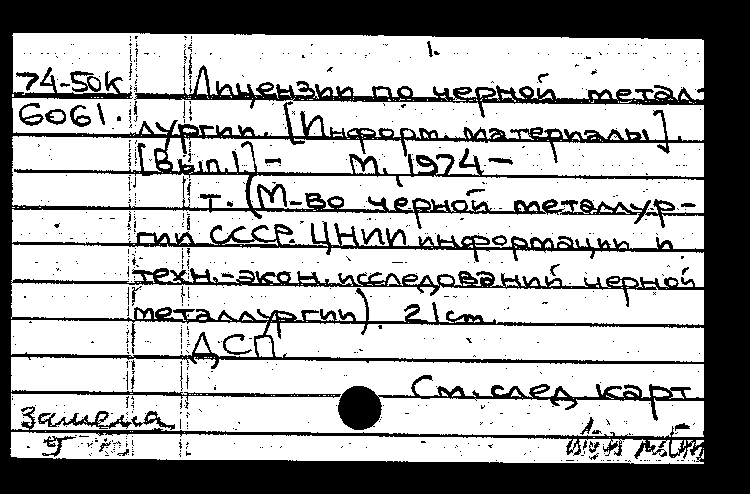 1.
74-50к Лицензии по черной метал-
6061. лургии. [Информ. материалы].
[Вып.1.] – М., 1974 –
т. (М-во черной металлур-
гии СССР. ЦНИИ информации и
техн.-экон. исследований черной
металлургии). 21 cm.
ДСП.
См. след карт
Замена